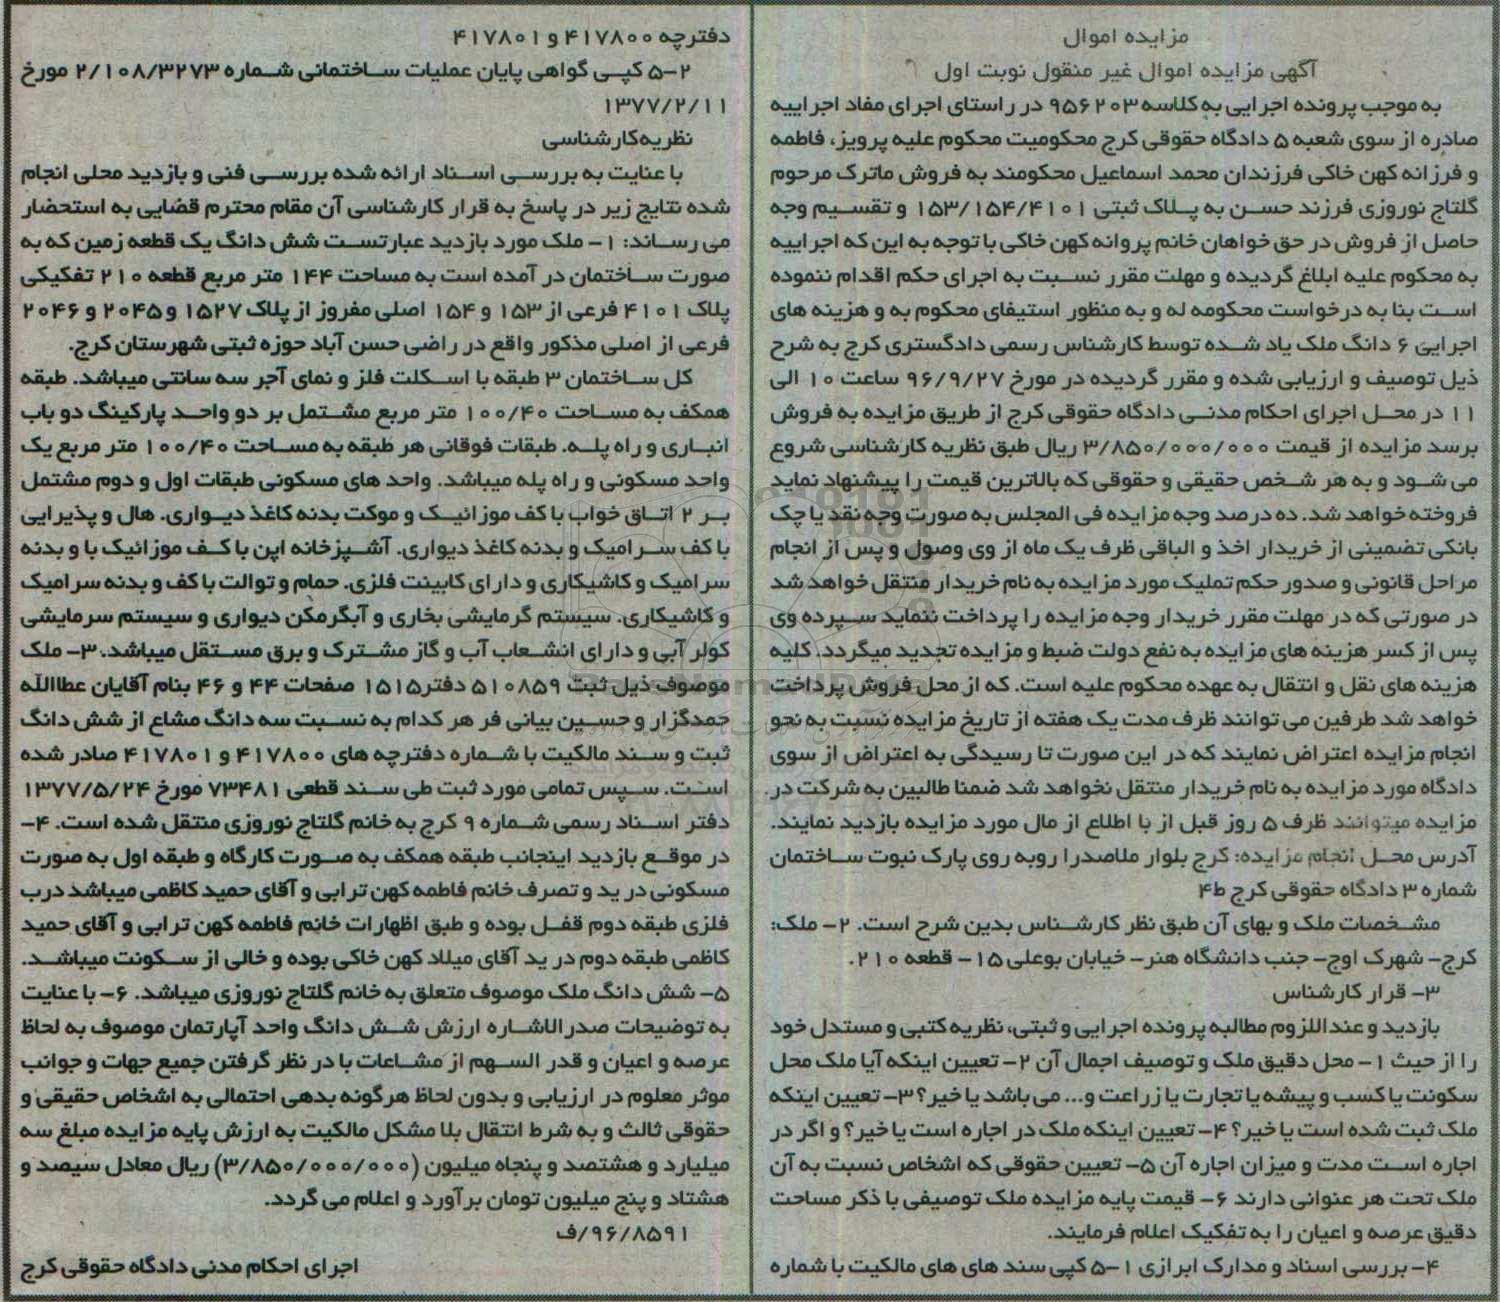 مزایده اموال
آگهی مزایده اموال غیر منقول نوبت اول
به موجب پرونده اجرایی به کلاسه ۹۵۶۲۰۳ در راستای اجرای مفاد اجراییه
صادره از سوی شعبه ۵ دادگاه حقوقی کرج محکومیت محکوم علیه پرویز، فاطمه
و فرزانه کهن خاکی فرزندان محمد اسماعیل محکومند به فروش ماترک مرحوم
گلتاج نوروزی فرزند حسن به پلاک ثبتی ۱۵۳/۱۵۴/۴۱۰۱ و تقسیم وجه
حاصل از فروش در حق خواهان خانم پروانه کهن خاکی با توجه به این که اجراییه
به محکوم علیه ابلاغ گردیده و مهلت مقرر نسبت به اجرای حکم اقدام ننموده
است بنا به درخواست محکومه له و به منظور استیفای محکوم به و هزینه های
اجرایی ۶ دانگ ملک یاد شده توسط کارشناس رسمی دادگستری کرج به شرح
ذیل توصیف و ارزیابی شده و مقرر گردیده در مورخ ۹۶/۹/۲۷ ساعت ۱۰ الی
۱۱ در محل اجرای احکام مدنی دادگاه حقوقی کرج از طریق مزایده به فروش
برسد مزایده از قیمت ۳/۸۵۰/۰۰۰/۰۰۰ ریال طبق نظریه کارشناسی شروع
می شود و به هر شخص حقیقی و حقوقی که بالاترین قیمت را پیشنهاد نماید
فروخته خواهد شد. ده درصد وجه مزایده فی المجلس به صورت وجه نقد یا چک
بانکی تضمینی از خریدار اخذ و الباقی ظرف یک ماه از وی وصول و پس از انجام
مراحل قانونی و صدور حکم تملیک مورد مزایده به نام خریدار منتقل خواهد شد
در صورتی که در مهلت مقرر خریدار وجه مزایده را پرداخت ننماید سپرده وی
پس از کسر هزینه های مزایده به نفع دولت ضبط و مزایده تجدید میگردد. کلیه
هزینه های نقل و انتقال به عهده محکوم علیه است. که از محل فروش پرداخت
خواهد شد طرفین می توانند ظرف مدت یک هفته از تاریخ مزایده نسبت به نحو
انجام مزایده اعتراض نمایند که در این صورت تا رسیدگی به اعتراض از سوی
دادگاه مورد مزایده به نام خریدار منتقل نخواهد شد ضمنا طالبین به شرکت در
مزایده میتوانند ظرف ۵ روز قبل از با اطلاع از مال مورد مزایده بازدید نمایند.
آدرس محل انجام مزایده: کرج بلوار ملاصدرا روبه روی پارک نبوت ساختمان
شماره ۳ دادگاه حقوقی کرج ط۴
مشخصات ملک و بهای آن طبق نظر کارشناس بدین شرح است. ۲- ملک:
کرج- شهرک اوج- جنب دانشگاه هنر- خیابان بوعلی ۱۵- قطعه ۲۱۰.
۳- قرار کارشناس
بازدید و عنداللزوم مطالبه پرونده اجرایی و ثبتی، نظریه کتبی و مستدل خود
را از حیث ۱- محل دقیق ملک و توصیف اجمال آن ۲- تعیین اینکه آیا ملک محل
سکونت یا کسب و پیشه یا تجارت یا زراعت و... می باشد یا خیر؟ ۳- تعیین اینکه
ملک ثبت شده است یا خیر؟ ۴- تعیین اینکه ملک در اجاره است یا خیر؟ و اگر در
اجاره است مدت و میزان اجاره آن ۵- تعیین حقوقی که اشخاص نسبت به آن
ملک تحت هر عنوانی دارند ۶- قیمت پایه مزایده ملک توصیفی با ذکر مساحت
دقیق عرصه و اعیان را به تفکیک اعلام فرمایند.
۴- بررسی اسناد و مدارک ابرازی ۱-۵ کپی سند های های مالکیت با شماره
دفترچه ۴۱۷۸۰۰ و ۴۱۷۸۰۱
۲-۵ کپی گواهی پایان عملیات ساختمانی شماره ۲/۱۰۸/۳۲۷۳ مورخ
۱۳۷۷/۲/۱۱
نظریه کارشناسی
با عنایت به بررسی اسناد ارائه شده بررسی فنی و بازدید محلی انجام
شده نتایج زیر در پاسخ به قرار کارشناسی آن مقام محترم قضایی به استحضار
می رساند: ۱- ملک مورد بازدید عبارتست شش دانگ یک قطعه زمین که به
صورت ساختمان در آمده است به مساحت ۱۴۴ متر مربع قطعه ۲۱۰ تفکیکی
پلاک ۴۱۰۱ فرعی از ۱۵۳ و ۱۵۴ اصلی مفروز از پلاک ۱۵۲۷ و ۲۰۴۵ و ۲۰۴۶
فرعی از اصلی مذکور واقع در راضی حسن آباد حوزه ثبتی شهرستان کرج.
کل ساختمان ۳ طبقه با اسکلت فلز و نمای آجر سه سانتی میباشد. طبقه
همکف به مساحت ۱۰۰/۴۰ متر مربع مشتمل بر دو واحد پارکینگ دو باب
انباری و راه پله. طبقات فوقانی هر طبقه به مساحت ۱۰۰/۴۰ متر مربع یک
واحد مسکونی و راه پله میباشد. واحد های مسکونی طبقات اول و دوم مشتمل
بر ۲ اتاق خواب با کف موزائیک و موکت بدنه کاغذ دیواری. هال و پذیرایی
با کف سرامیک و بدنه کاغذ دیواری. آشپزخانه اپن با کف موزائیک با و بدنه
سرامیک و کاشیکاری و دارای کابینت فلزی. حمام و توالت با کف و بدنه سرامیک
و کاشیکاری. سیستم گرمایشی بخاری و آبگرمکن دیواری و سیستم سرمایشی
کولر آبی و دارای انشعاب آب و گاز مشترک و برق مستقل میباشد. ۳- ملک
موصوف ذیل ثبت ۵۱۰۸۵۹ دفتر۱۵۱۵ صفحات ۴۴ و ۴۶ بنام آقایان عطاالله
حمدگزار و حسین بیانی فر هر کدام به نسبت سه دانگ مشاع از شش دانگ
ثبت و سند مالکیت با شماره دفترچه های ۴۱۷۸۰۰ و ۴۱۷۸۰۱ صادر شده
است. سپس تمامی مورد ثبت طی سند قطعی ۷۳۴۸۱ مورخ ۱۳۷۷/۵/۲۴
دفتر اسناد رسمی شماره ۹ کرج به خانم گلتاج نوروزی منتقل شده است. ۴-
در موقع بازدید اینجانب طبقه همکف به صورت کارگاه و طبقه اول به صورت
مسکونی در ید و تصرف خانم فاطمه کهن ترابی و آقای حمید کاظمی میباشد درب
فلزی طبقه دوم قفل بوده و طبق اظهارات خانم فاطمه کهن ترابی و آقای حمید
کاظمی طبقه دوم در ید آقای میلاد کهن خاکی بوده و خالی از سکونت میباشد.
۵- شش دانگ ملک موصوف متعلق به خانم گلتاج نوروزی میباشد. ۶- با عنایت
به توضیحات صدرالاشاره ارزش شش دانگ واحد آپارتمان موصوف به لحاظ
عرصه و اعیان و قدر السهم از مشاعات با در نظر گرفتن جمیع جهات و جوانب
موثر معلوم در ارزیابی و بدون لحاظ هرگونه بدهی احتمالی به اشخاص حقیقی و
حقوقی ثالث و به شرط انتقال بلا مشکل مالکیت به ارزش پایه مزایده مبلغ سه
میلیارد و هشتصد و پنجاه میلیون (۳/۸۵۰/۰۰۰/۰۰۰) ریال معادل سیصد و
هشتاد و پنج میلیون تومان برآورد و اعلام می گردد.
۹۶/۸۵۹۱/ف
اجرای احکام مدنی دادگاه حقوقی کرج